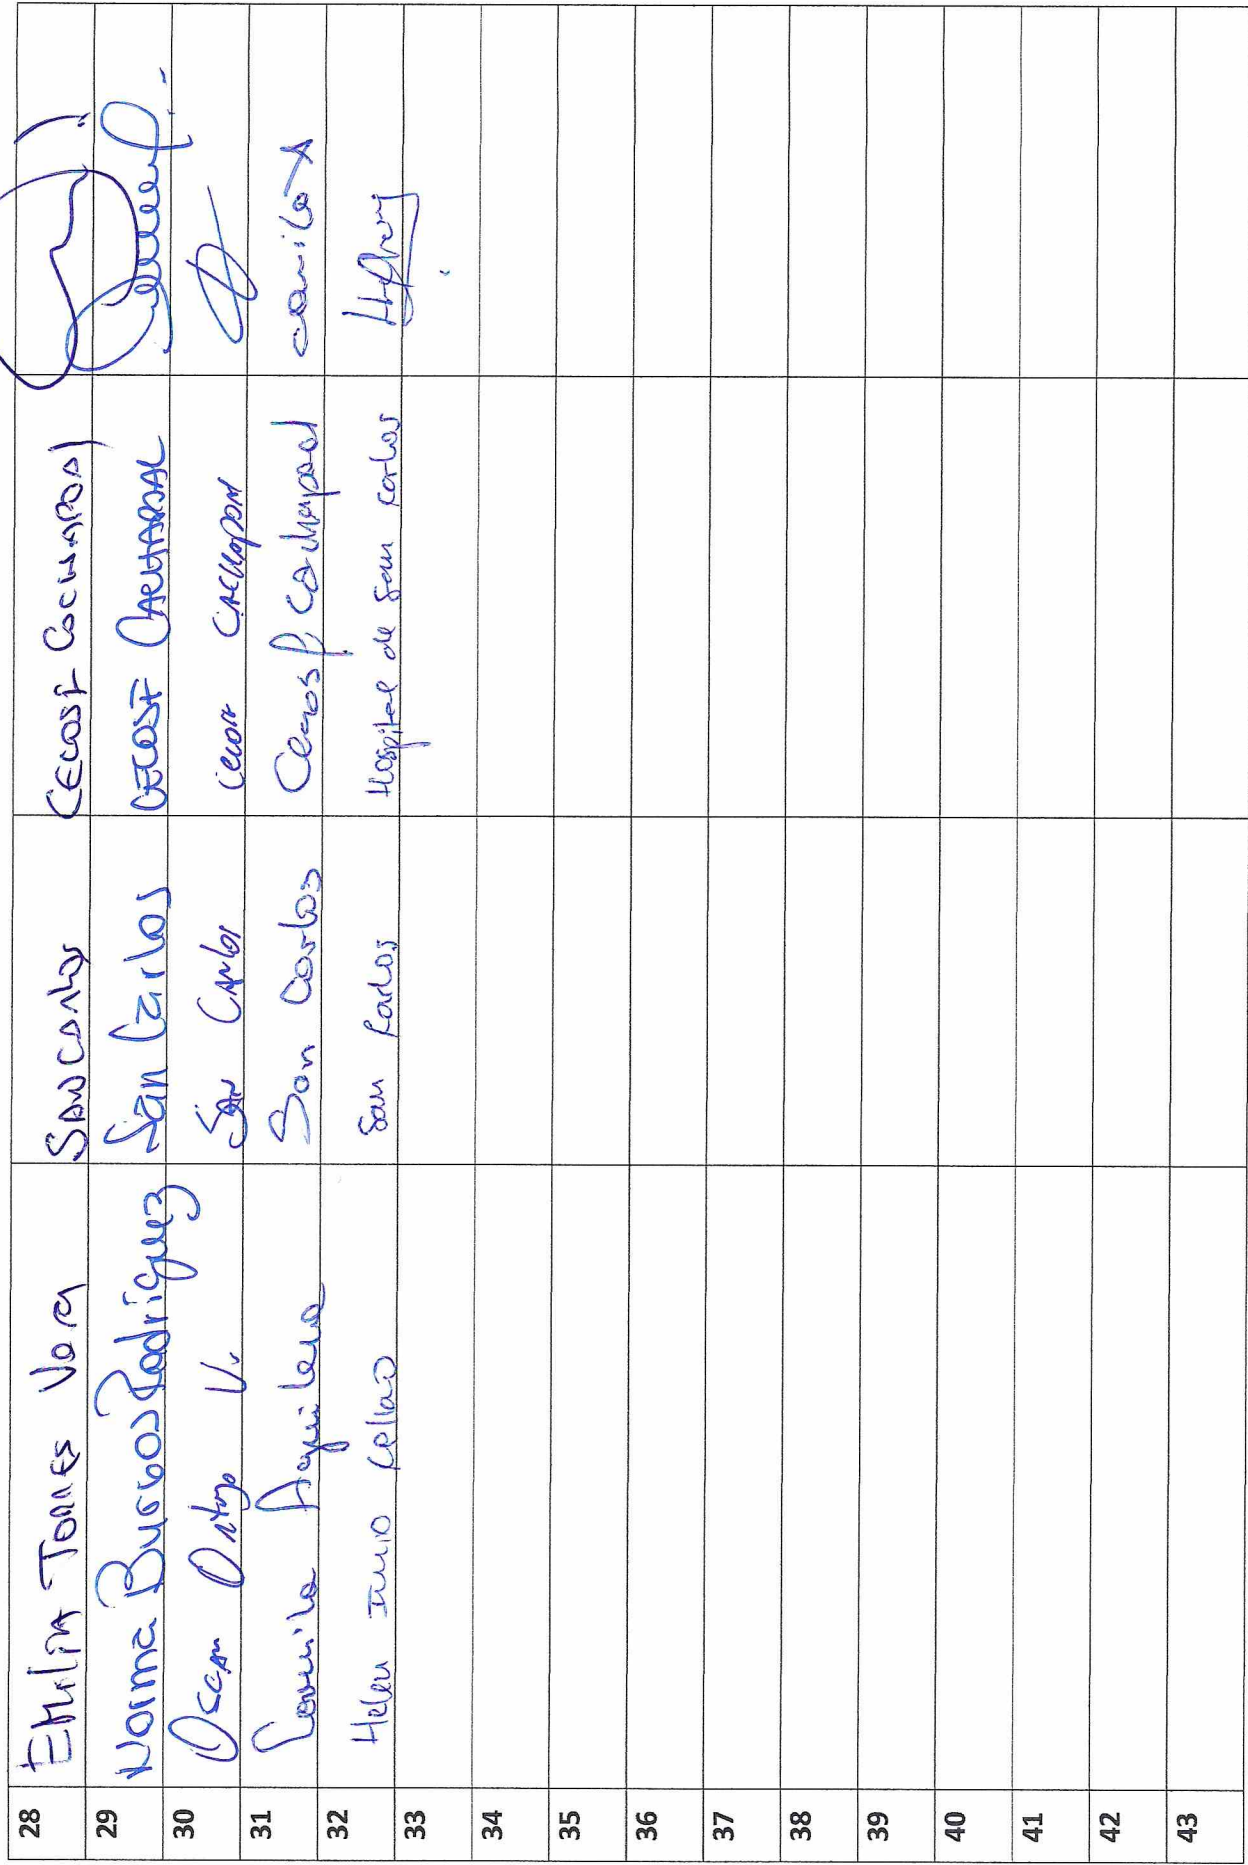 28 EMILIA TORRES Vera SAN CARLOS CECOSF
29 Norma Burgos Rodriguez San Carlos CECOSF CACHAPOAL
30 Oscar V. SAN CARLOS
31 Camila Aguilera San Carlos Cecosf Cachapoal Camila A
32 Helen San Carlos Hospital de San Carlos
33
34
35
36
37
38
39
40
41
42
43